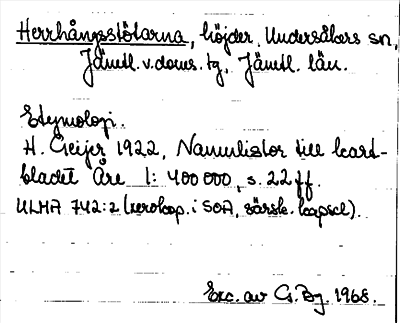 Herrhångsstötarna, höjder, Undersåkers sn,
Jämtl. v. doms. tg, Jämtl. län.
Etymologi.
H. Geijer 1922, Namnlistor till kart-
bladet Åre 1:400 000, s. 22 ff.
ULMA 742:2 (xerokop. i SOA, särsk. kapsel).
Exc. av G. By. 1968.